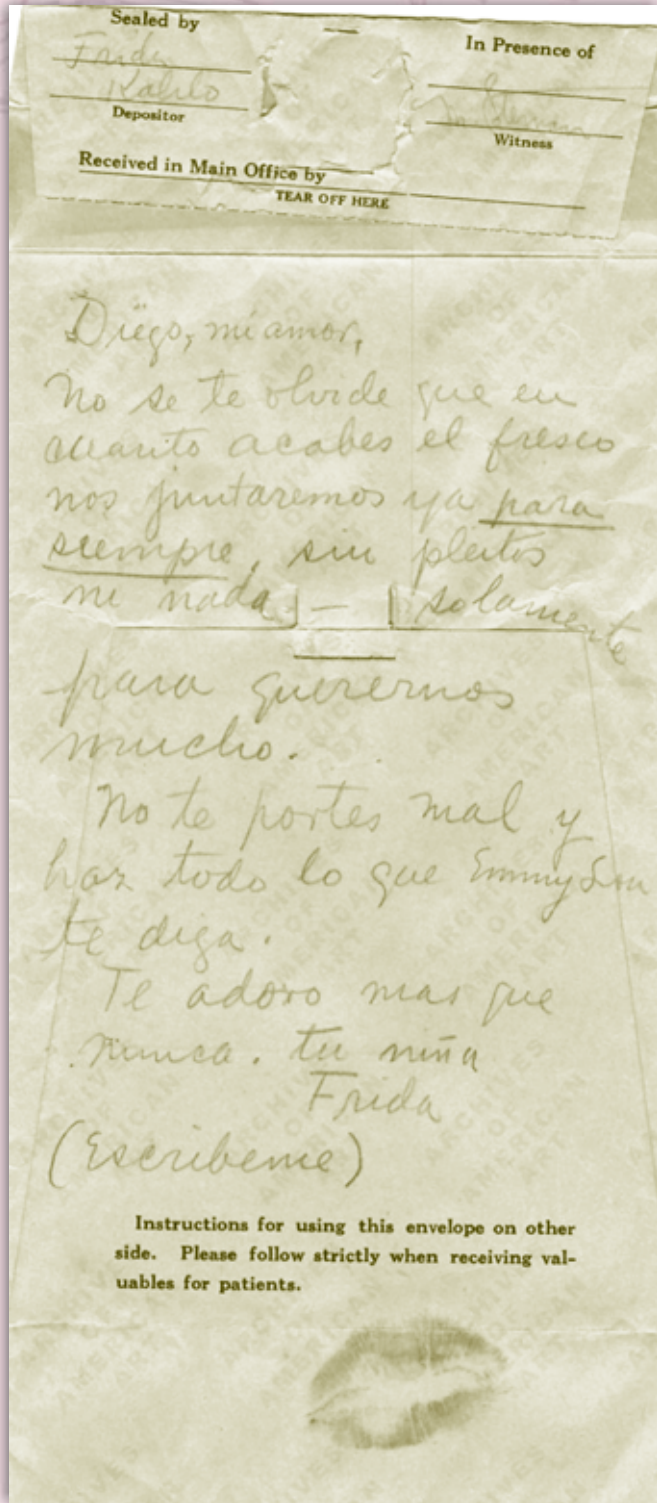 Sealed by
In Presence of
Frida
Kahlo
Depositor
Witness
Received in Main Office by
TEAR OFF HERE
Diego, mi amor,
No se te olvide que en
cuanto acabes el fresco
nos juntaremos ya para
siempre, sin pleitos
ni nada — solamente
para querernos
mucho.
No te portes mal y
haz todo lo que Emmy Lou
te diga.
Te adoro mas que
nunca. tu niña
Frida
(Escribeme)
Instructions for using this envelope on other
side. Please follow strictly when receiving val-
uables for patients.
ARCHIVES
OF
AMERICAN
ART